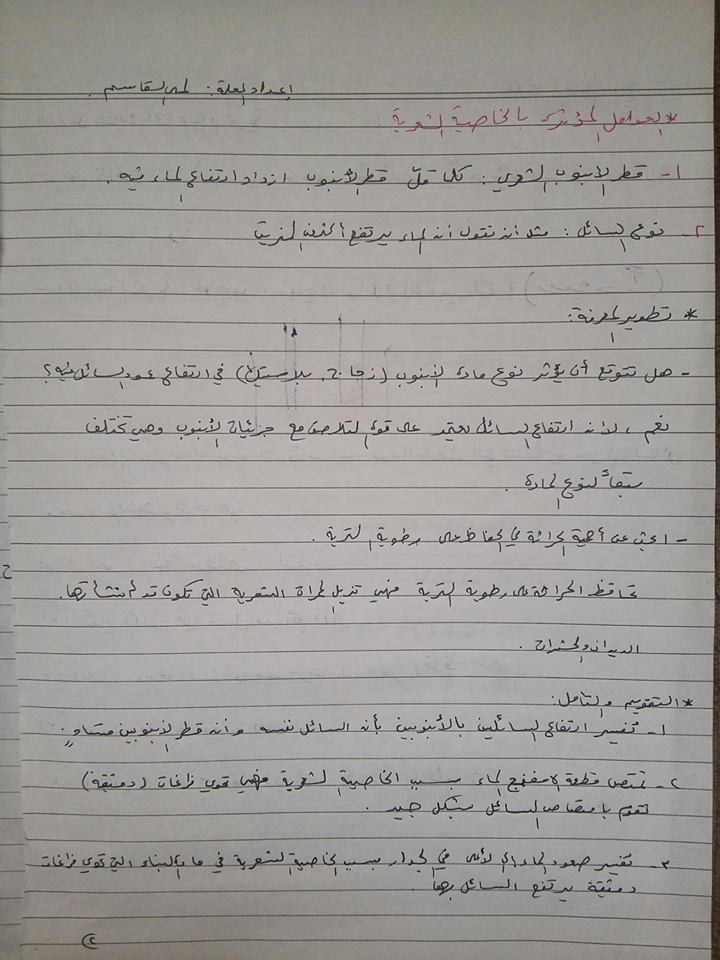 إعداد المعلمة: لمى القاسم.
* العوامل المؤثرة بالخاصية الشعرية:
١- قطر الأنبوب الشعري: كلما قلّ قطر الأنبوب ازداد ارتفاع الماء فيه.
٢- نوع السائل: مثلاً نقول أن الماء يرتفع أكثر من الزيت
* تطوير المعرفة:
- هل تتوقع أن يؤثر نوع مادة الأنبوب (زجاج، بلاستيك) في ارتفاع عمود السائل فيه؟
نعم، لأن ارتفاع السائل يعتمد على قوة التلاصق مع جزيئات الأنبوب وهي تختلف
تبعاً لنوع المادة.
- ابحث عن أهمية الحراثة في الحفاظ على رطوبة التربة.
تحافظ الحراثة على رطوبة التربة فهي تزيل المجاري الشعرية التي تكون قد أنشأتها
الديدان والحشرات.
* التقويم والتأمل:
١- تفسير ارتفاع السائلين بالأنبوبين بأن السائل نفسه وأن قطر الأنبوبين متساوٍ.
٢- تمتص قطعة الإسفنج الماء بسبب الخاصية الشعرية فهي تحوي فراغات (دقيقة)
تقوم بامتصاص السائل بشكل جيد.
٣- تفسير صعود الماء إلى الأعلى في الجدار بسبب الخاصية الشعرية في مادة البناء التي تحوي فراغات
دقيقة يرتفع السائل بها.
٢